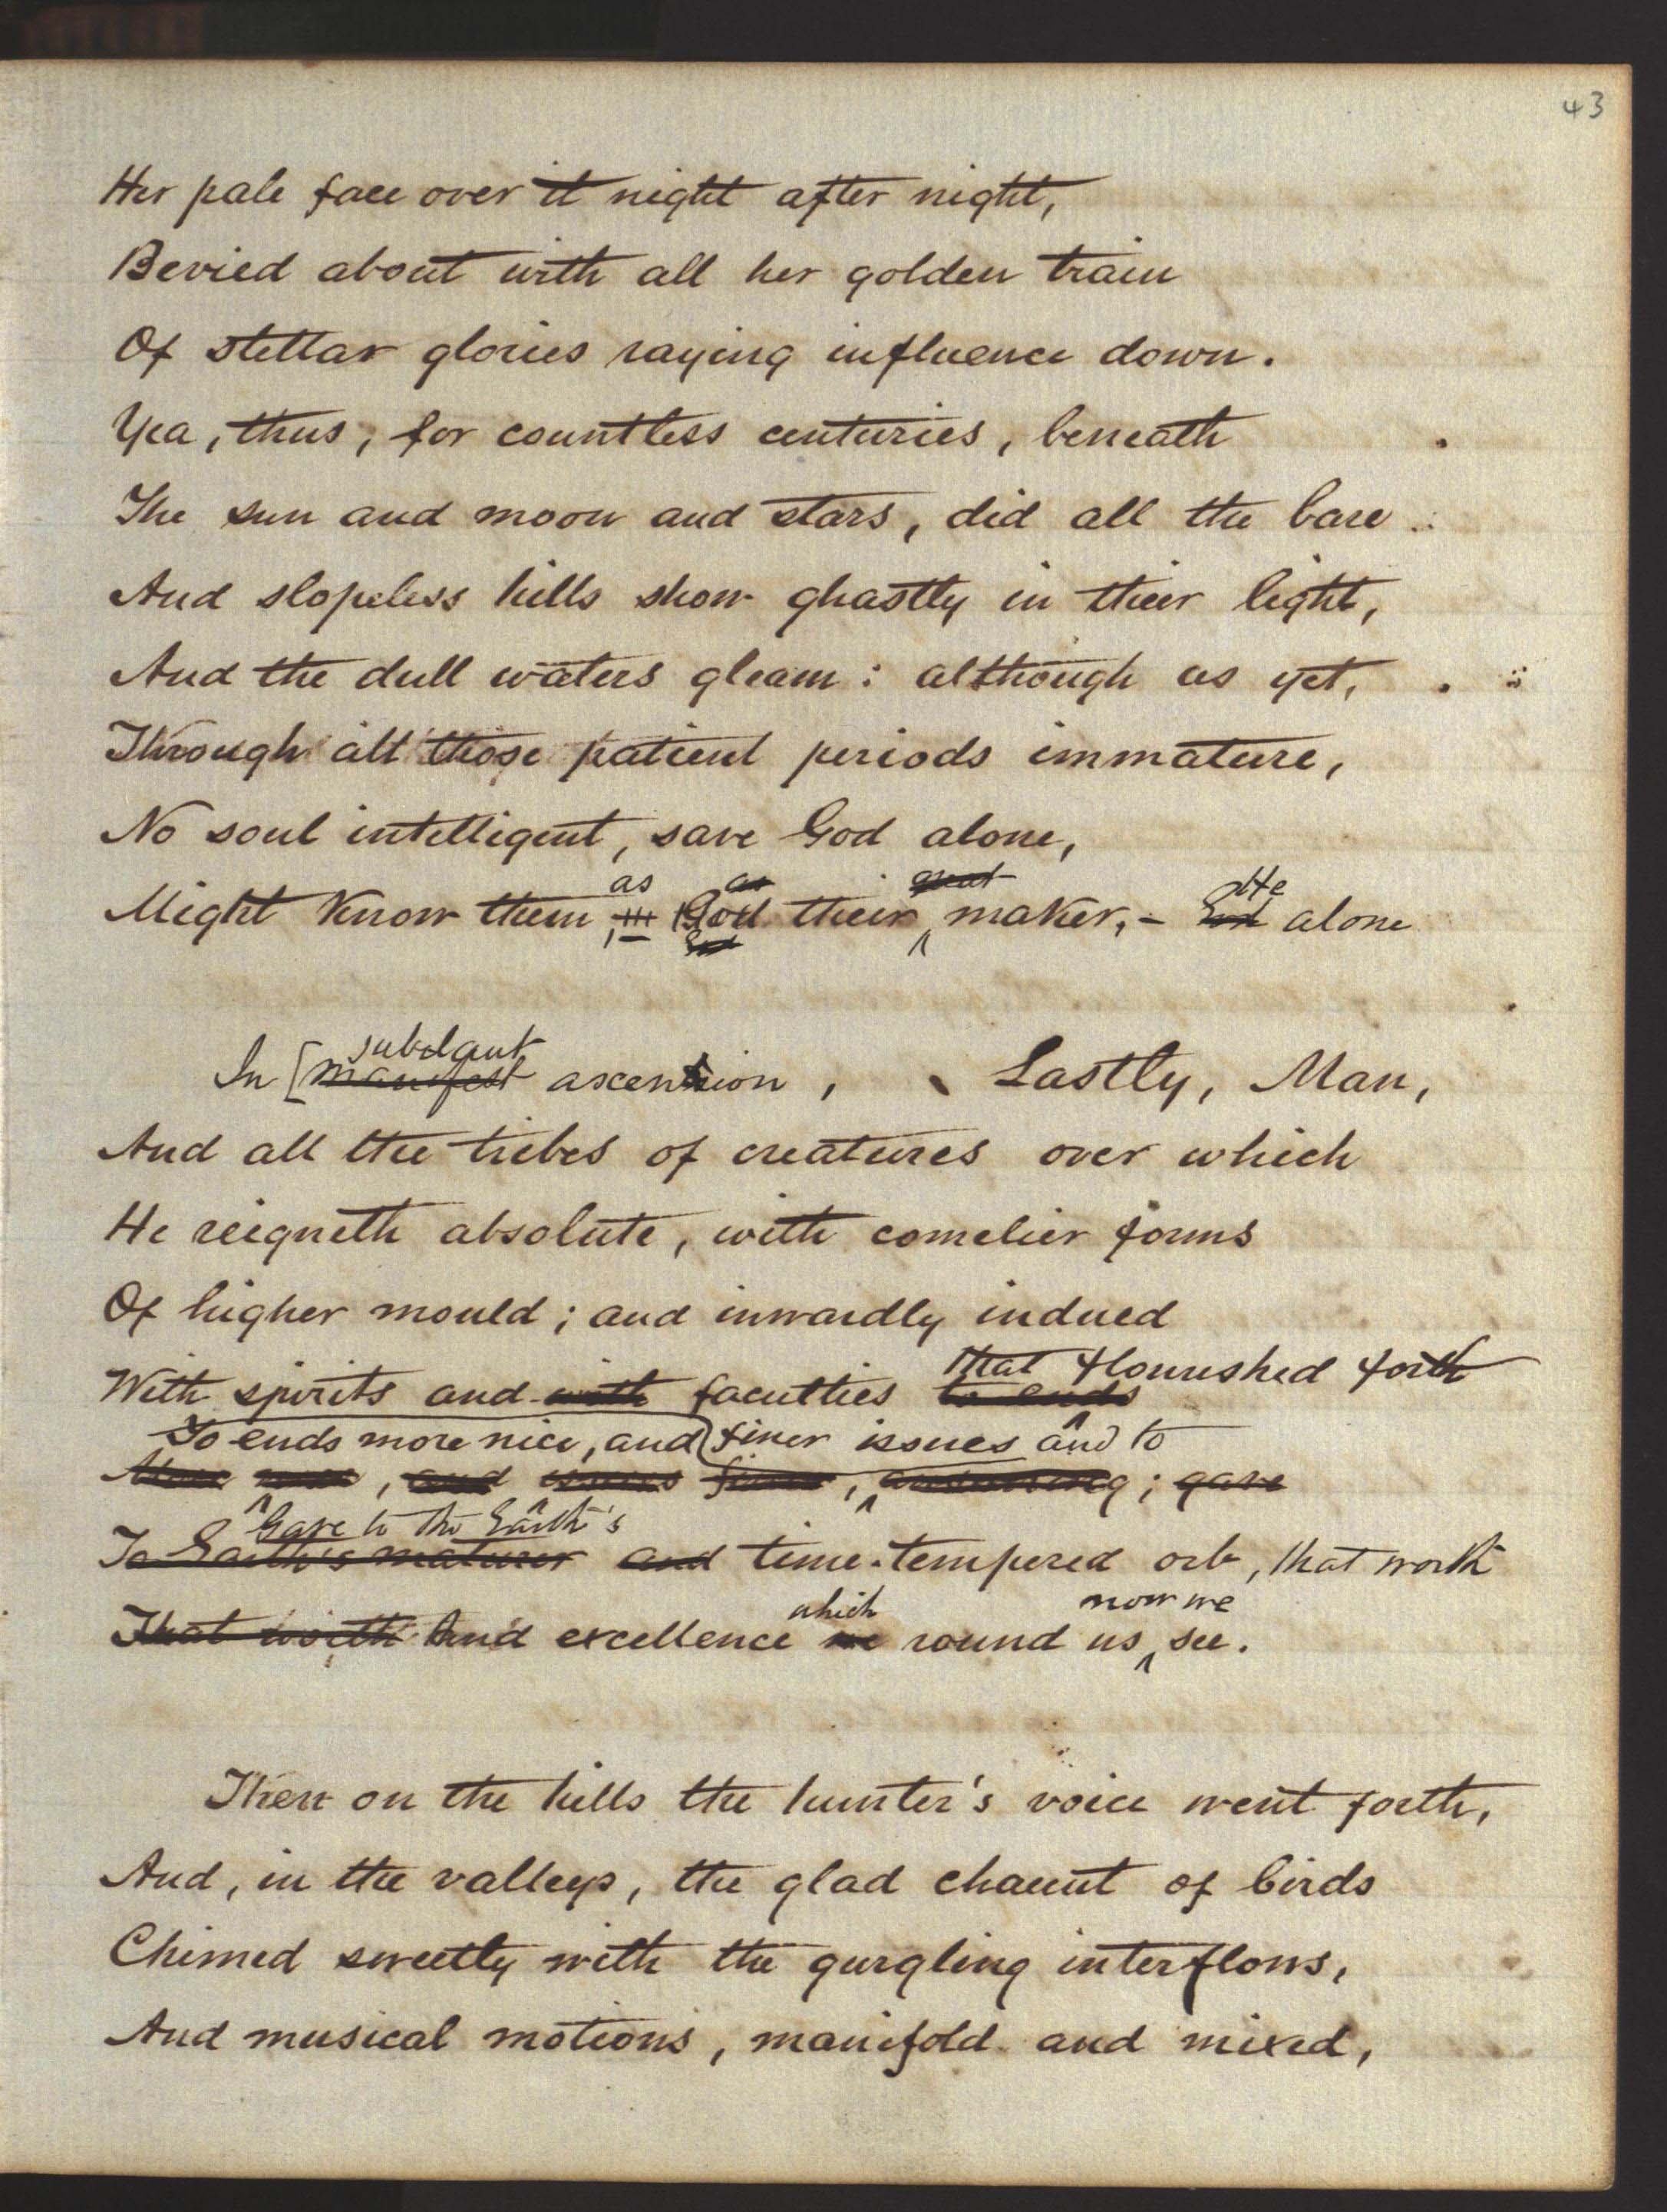 43
Her pale face over it night after night,
Bevied about with all her golden train
Of stellar glories raying influence down.
Yea, thus, for countless centuries, beneath
The sun and moon and stars, did all the bare
And slopeless hills show ghastly in their light,
And the dull waters gleam: although as yet,
Through all those patient periods immature,
No soul intelligent, save God alone,
as as great He
Might know them, God their maker, – God alone
manifest ascension, Lastly, Man,
And all the tribes of creatures over which
He reigneth absolute, with comelier forms
Of higher mould; and inwardly indued
that flourished forth
With spirits and with faculties to ends
To ends more nice, and finer issues and to
More nice, and issues finer, answering; gave
Gave to the Earth's
To Earth's maturer and time-tempered orb, that worth
which now we
That worth And excellence we round us see.
Then on the hills the hunter's voice went forth,
And, in the valleys, the glad chaunt of birds
Chimed sweetly with the gurgling interflows,
And musical motions, manifold and mixed,